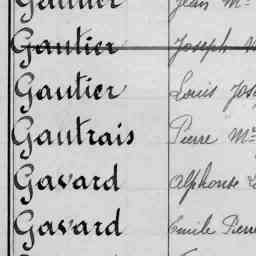 Gautier Jean Mie
Gautier Joseph
Gautier Louis Jose
Gautrais Pierre Mie
Gavard Alphonse
Gavard Emile Pierre